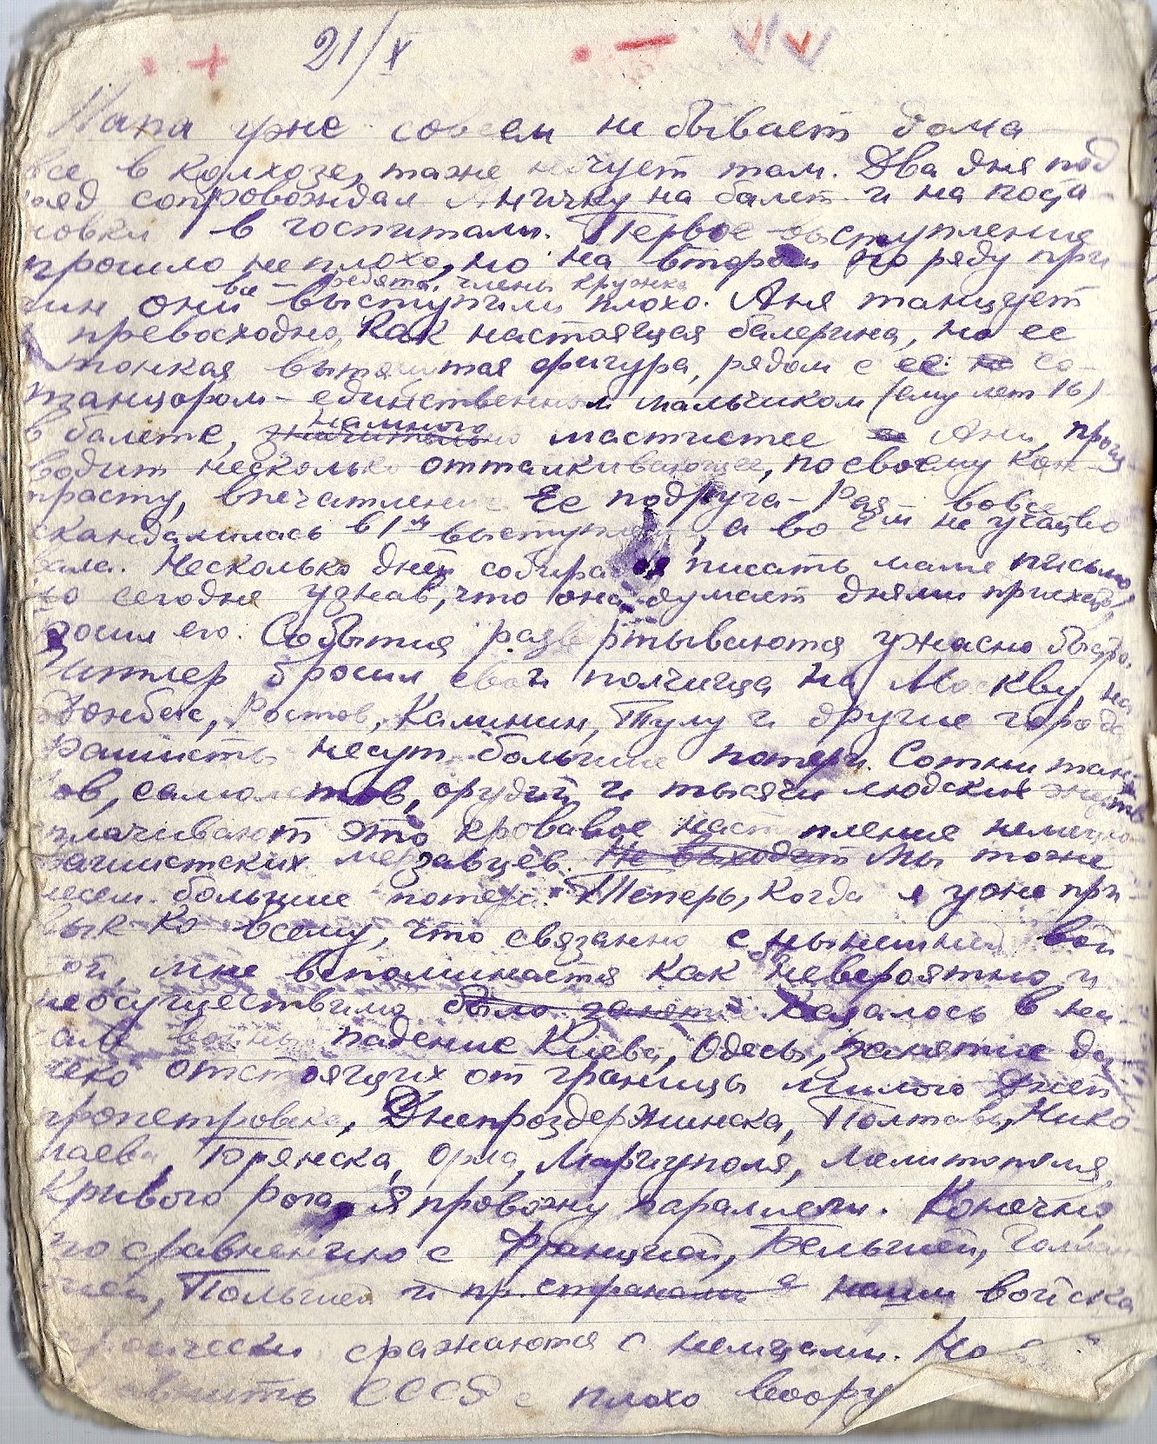 21/X
Папа уже совсем не бывает дома
все в колхозе, также ночует там. Два дня под
ряд сопровождал Аничку на балет и на поста-
новки в госпитали. Первое выступление
прошло неплохо, но на втором по ряду при
все ребята, члены кружка
чин они выступили плохо. Аня танцует
превосходно, как настоящая балерина, но ее
тонкая вытянутая фигура, рядом с ее со-
танцором – единственным мальчиком (ему лет 16)
намного
в балете, значительно мастистее Ани, произ-
водит несколько отталкивающее, по своему кон-
трасту, впечатление. Ее подруга – Рая – вовсе
скандалилась в 1м выступлении, а во 2м не участво
вала. Несколько дней собирался писать маме письмо,
но сегодня узнав, что она думает днями приехать,
бросил его. События развертываются ужасно быстро.
Гитлер бросил свои полчища на Москву, на
Донбас, Ростов, Калинин, Тулу и другие города
Фашисты несут большие потери. Сотни тан-
ков, самолетов, орудий и тысячи людских жертв
оплачивают это кровавое наступление немецко
фашистских мерзавцев. Не выходят Мы тоже
несем большие потери. Теперь, когда я уже при
вык ко всему, что связанно с нынешней вой
ной, мне вспоминается как невероятно и
неосуществимо было занят Казалось в на-
чале войны падение Киева, Одесы, занятие да-
леко отстоящих от границы милого Днеп
ропетровска, Днепроздержинска, Полтавы, Нико-
лаева, Брянска, Орла, Мариуполя, Мелитополя,
Кривого рога. Я провожу паралели. Конечно,
по сравнению с Францией, Бельгией, Голлан
дией, Польшей и пр. странами наши войска
героически сражаются с немцами. Но
сравнить СССР с плохо воору